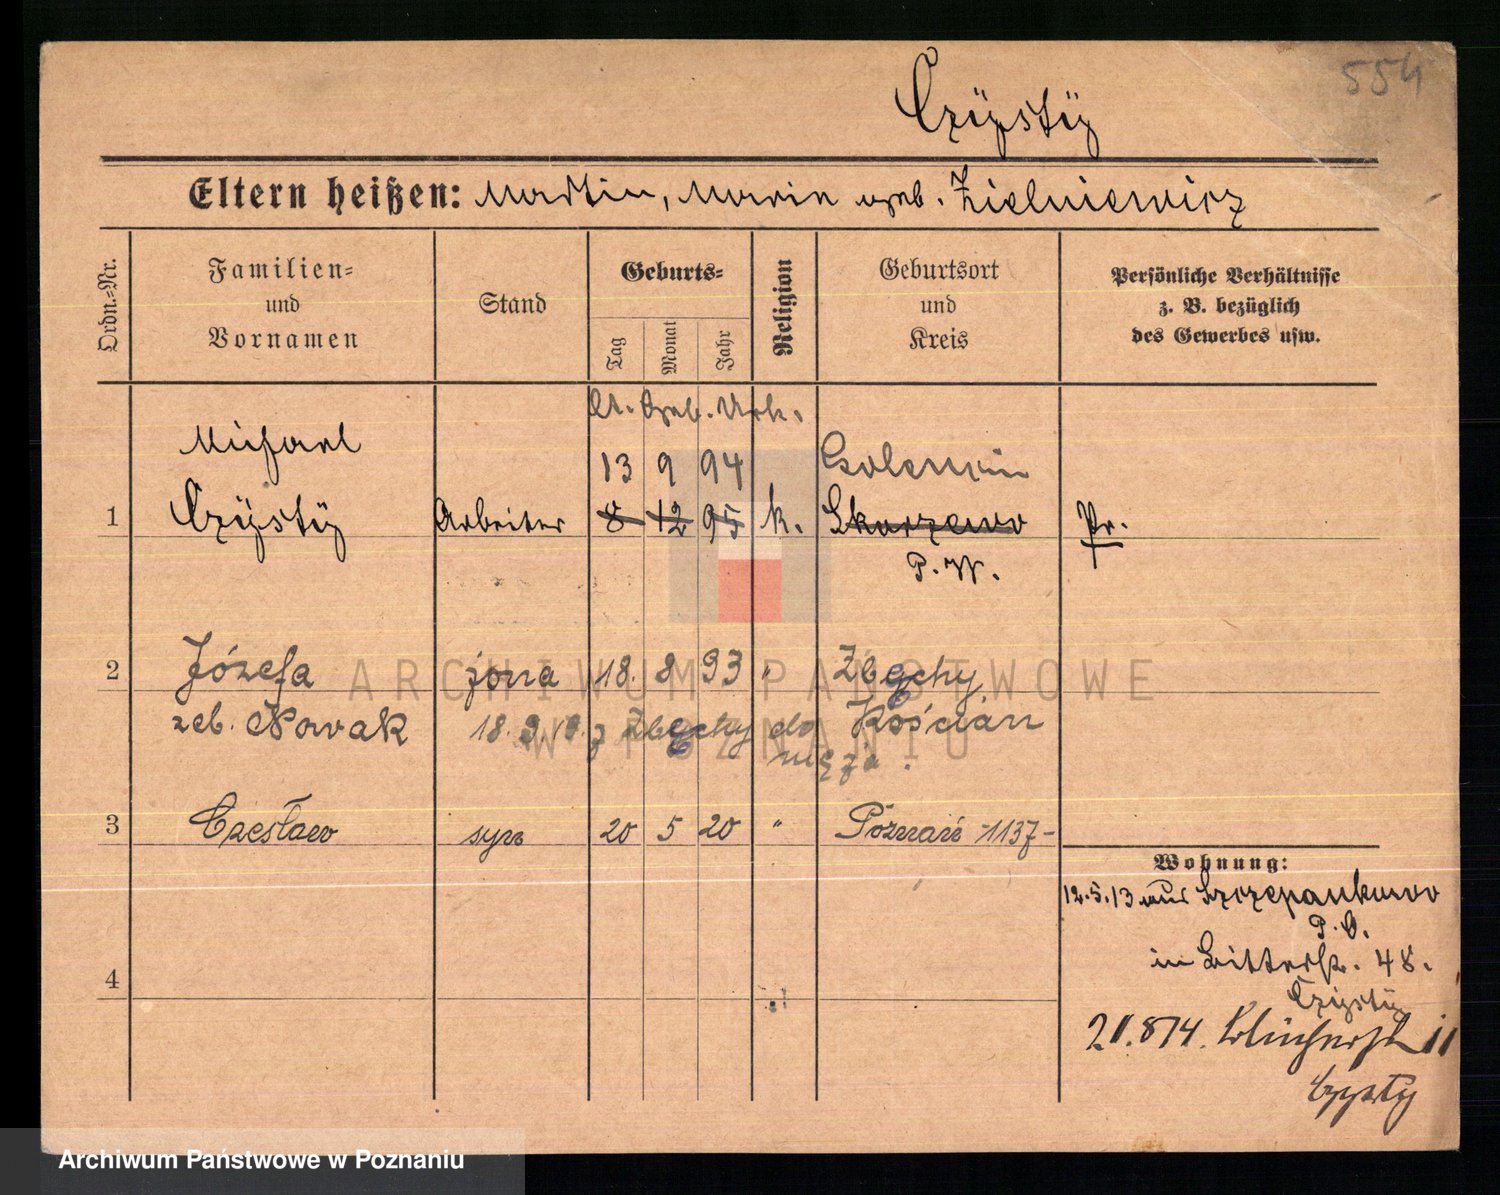 554
Czÿstÿ
Eltern heißen: Martin, Maria geb. Zielniewicz
Ordn.=Nr.
Familien=
und
Vornamen
Stand
Geburts=
Tag
Monat
Jahr
Religion
Geburtsort
und
Kreis
Persönliche Verhältnisse
z. B. bezüglich
des Gewerbes usw.
lt. Geb. Urk.
Michael
13 9 94
1 Czÿstÿ Arbeiter 8 12 95 k. Skorzewo Pr.
P. W.
2 Józefa żona 18. 8 93 " Zbęchy
zeb. Nowak 18. 9. 19. z Zbęchy do Kościan
męża.
3 Czesław syn 20 5 20 " Poznań -1137-
Wohnung:
12.5.13 aus Szczepankowo
P. O.
in Ritterstr. 48.
Czÿstÿ
4
21.8 14. Blücherstr 11
Czysty
ARCHIWUM PAŃSTWOWE
W POZNANIU
Archiwum Państwowe w Poznaniu